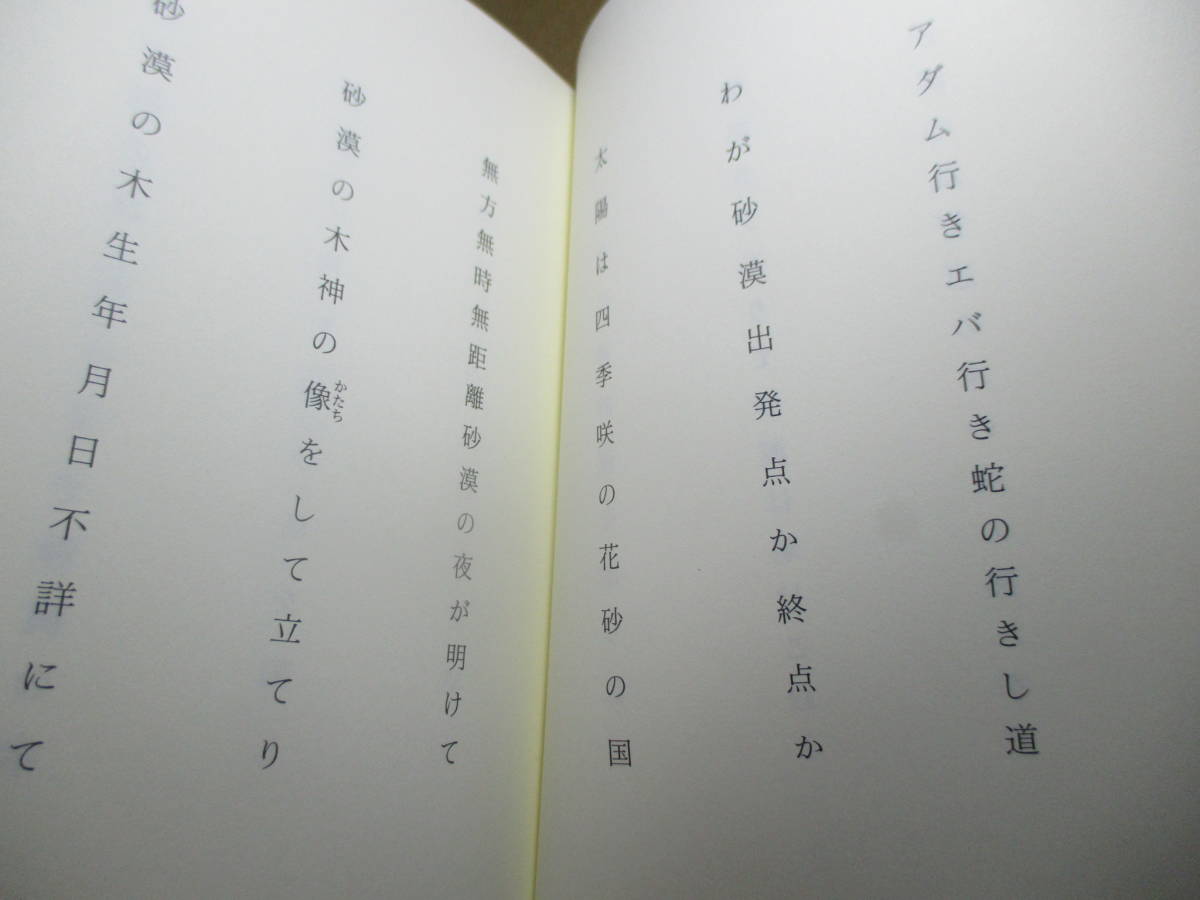 アダム行きエバ行き蛇の行きし道
わが砂漠出発点か終点か
太陽は四季咲の花砂の国
無方無時無距離砂漠の夜が明けて
砂漠の木神の像をして立てり
かたち
砂漠の木生年月日不詳にて